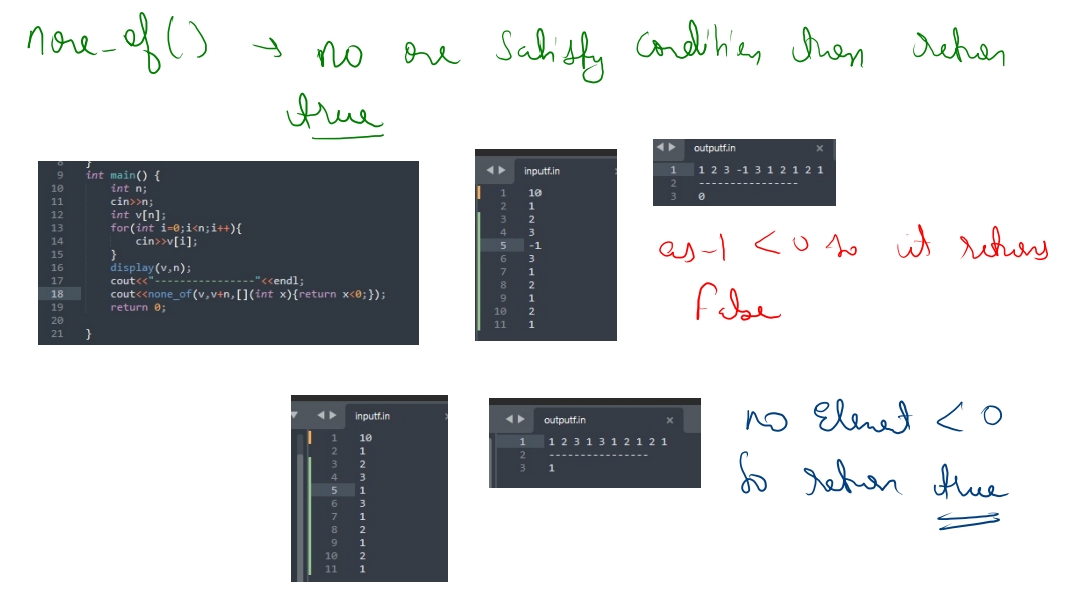 none_of() → no one satisfy condition then return
true
8 }
9 int main() {
10 int n;
11 cin>>n;
12 int v[n];
13 for(int i=0;i<n;i++){
14 cin>>v[i];
15 }
16 display(v,n);
17 cout<<"---------------"<<endl;
18 cout<<none_of(v,v+n,[](int x){return x<0;});
19 return 0;
20
21 }
inputf.in
1 10
2 1
3 2
4 3
5 -1
6 3
7 1
8 2
9 1
10 2
11 1
outputf.in ×
1 1 2 3 -1 3 1 2 1 2 1
2 ----------------
3 0
as -1 < 0 so it returns
false
inputf.in
1 10
2 1
3 2
4 3
5 1
6 3
7 1
8 2
9 1
10 2
11 1
outputf.in ×
1 1 2 3 1 3 1 2 1 2 1
2 ----------------
3 1
no Element < 0
so return true